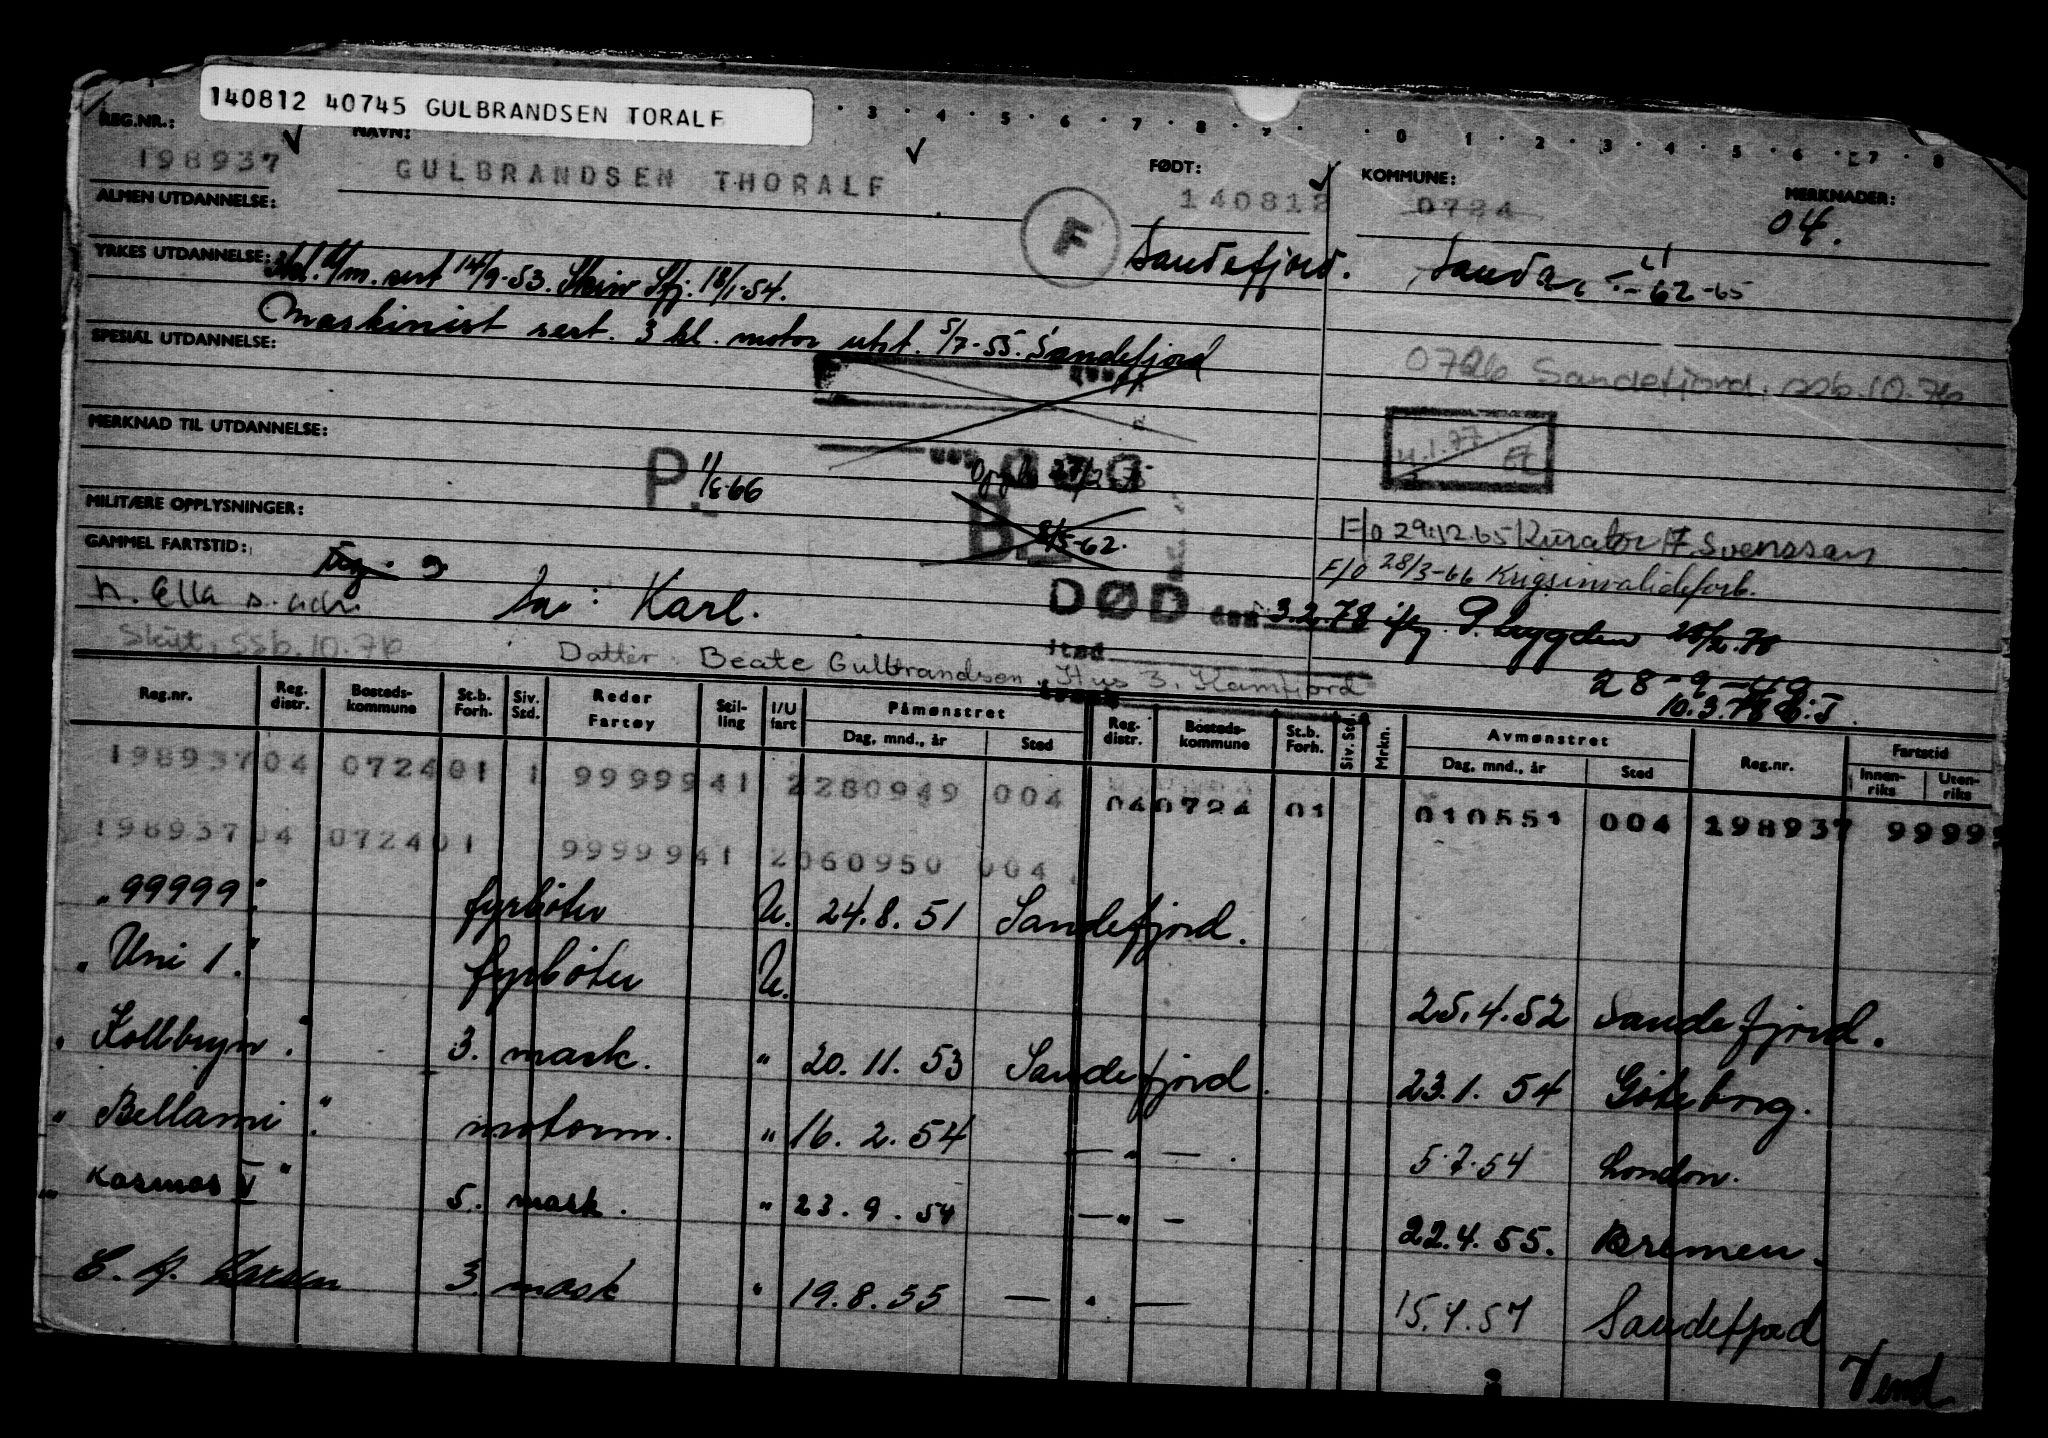 140812 40745 GULBRANDSEN TORALF
3 4 5 6 7 8 9 0 1 2 3 4 5 6 7 8
REG.NR.: NAVN: FØDT: KOMMUNE: MERKNADER:
198937 GULBRANDSEN THORALF 140812 0724 04.
ALMEN UTDANNELSE:
F Sandefjord. Sandar 62-65
YRKES UTDANNELSE: sert 14/9-53. Sfj. 18/1-54.
Maskinist sert. 3 kl. motor utst. 5/7-55. Sandefjord
SPESIAL UTDANNELSE:
Sandefjord, ssb.10.76
MERKNAD TIL UTDANNELSE:
4.1.77
P. 66
MILITÆRE OPPLYSNINGER:
B 62.
F/o 29.12.65 Kurator F. Svenssen
GAMMEL FARTSTID:
F/o 28/3-66 Krigsinvalideforb.
h. Ella s. adr. Karl.
DØD den 3.2.78 iflg. P. bygden 20/2.78
Skilt, ssb.10.76
Datter Beate Gulbrandsen, Hus 3, Kamfjord
sted
28-9-49
10.3.78
Reg.nr. Reg. distr. Bosteds-kommune St.b. Forh. Siv. Std. Reder Fartøy Stil-ling I/U fart Påmønstret Dag, mnd., år Sted Reg. distr. Bosteds-kommune St.b. Forh. Siv. Std. Mrkn. Avmønstret Dag, mnd., år Sted Reg.nr. Fartstid Innen-riks Uten-riks
198937 04 0724 01 1 9999941 2 280949 004 04 0724 01 010551 004 198937 9999
198937 04 0724 01 9999941 2 060950 004
"99999" fyrbøter U. 24.8.51 Sandefjord.
"Uni 1." fyrbøter U. 25.4.52 Sandefjord.
"Kollbryn." 3. mask. " 20.11.53 Sandefjord. 23.1.54 Göteborg.
"Bellami" motorm. " 16.2.54 — " — . 5.7.54 London.
"Kosmos V" 5. mask. " 23.9.54 — " — 22.4.55. Bremen.
C. A. Larsen 3. mask " 19.8.55 — " — 15.4.57 Sandefjord
Vend